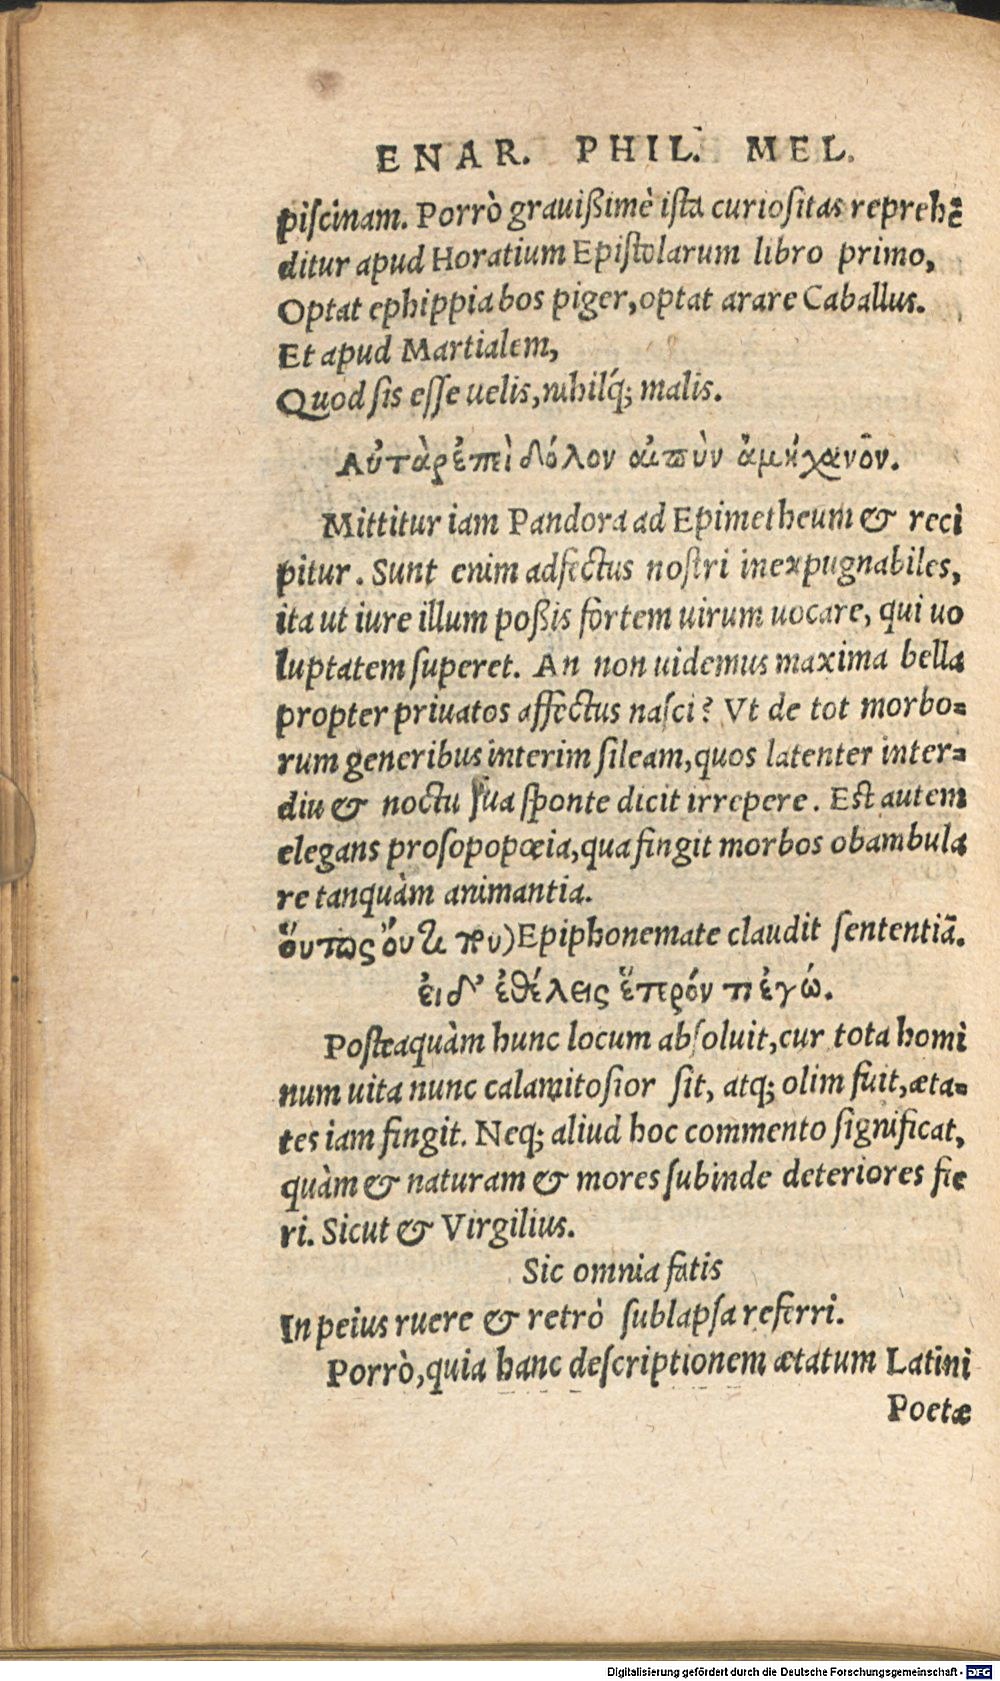 ENAR. PHIL. MEL.
piſcinam. Porrò grauißimè iſta curioſitas reprehẽ
ditur apud Horatium Epiſtolarum libro primo,
Optat ephippia bos piger, optat arare Caballus.
Et apud Martialem,
Quod ſis eſſe uelis, nihilq́; malis.
Αὐτὰρ ἐπεὶ δόλον αἰπὺν ἀμήχανον.
Mittitur iam Pandora ad Epimetheum & reci
pitur. Sunt enim adfectus noſtri inexpugnabiles,
ita ut iure illum poßis fortem uirum uocare, qui uo
luptatem ſuperet. An non uidemus maxima bella
propter priuatos affectus naſci? Vt de tot morbo=
rum generibus interim ſileam, quos latenter inter=
diu & noctu ſua ſponte dicit irrepere. Eſt autem
elegans proſopopœia, qua fingit morbos obambula
re tanquàm animantia.
οὕτως οὔτε που) Epiphonemate claudit ſententiã.
εἰ δ' ἐθέλεις ἕτερόν τι ἐγώ.
Poſteaquàm hunc locum abſoluit, cur tota homi
num uita nunc calamitoſior ſit, atq; olim fuit, æta=
tes iam fingit. Neq; aliud hoc commento ſignificat,
quàm & naturam & mores ſubinde deteriores fie
ri. Sicut & Virgilius.
Sic omnia fatis
In peius ruere & retrò ſublapſa referri.
Porrò, quia hanc deſcriptionem ætatum Latini
Poetæ
Digitalisierung gefördert durch die Deutsche Forschungsgemeinschaft - DFG